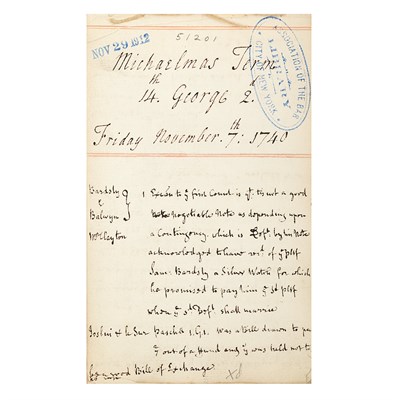 NOV 29 1912
51201
ASSOCIATION OF THE BAR
LIBRARY
CITY NEW YORK
Michaelmas Term
14th. George 2d
Friday November. 7th: 1740
Bardsly
&
Baldwyn
1 Excôn to ye first Count is yt. tis not a good
Note Negotiable Note as depending upon
a Contingency, which is Deft. by his Note
acknowledged to have recd. of ye pltf
Sam: Bardsly a Silver Watch for which
he promised to pay him ye sd pltf
when ye sd. Deft. shall marrie
Joslin & Lesur Paschal 1.G.1. was a Bill drawn to pay
yt out of a fund and yt was held not to
Bill of Exchange